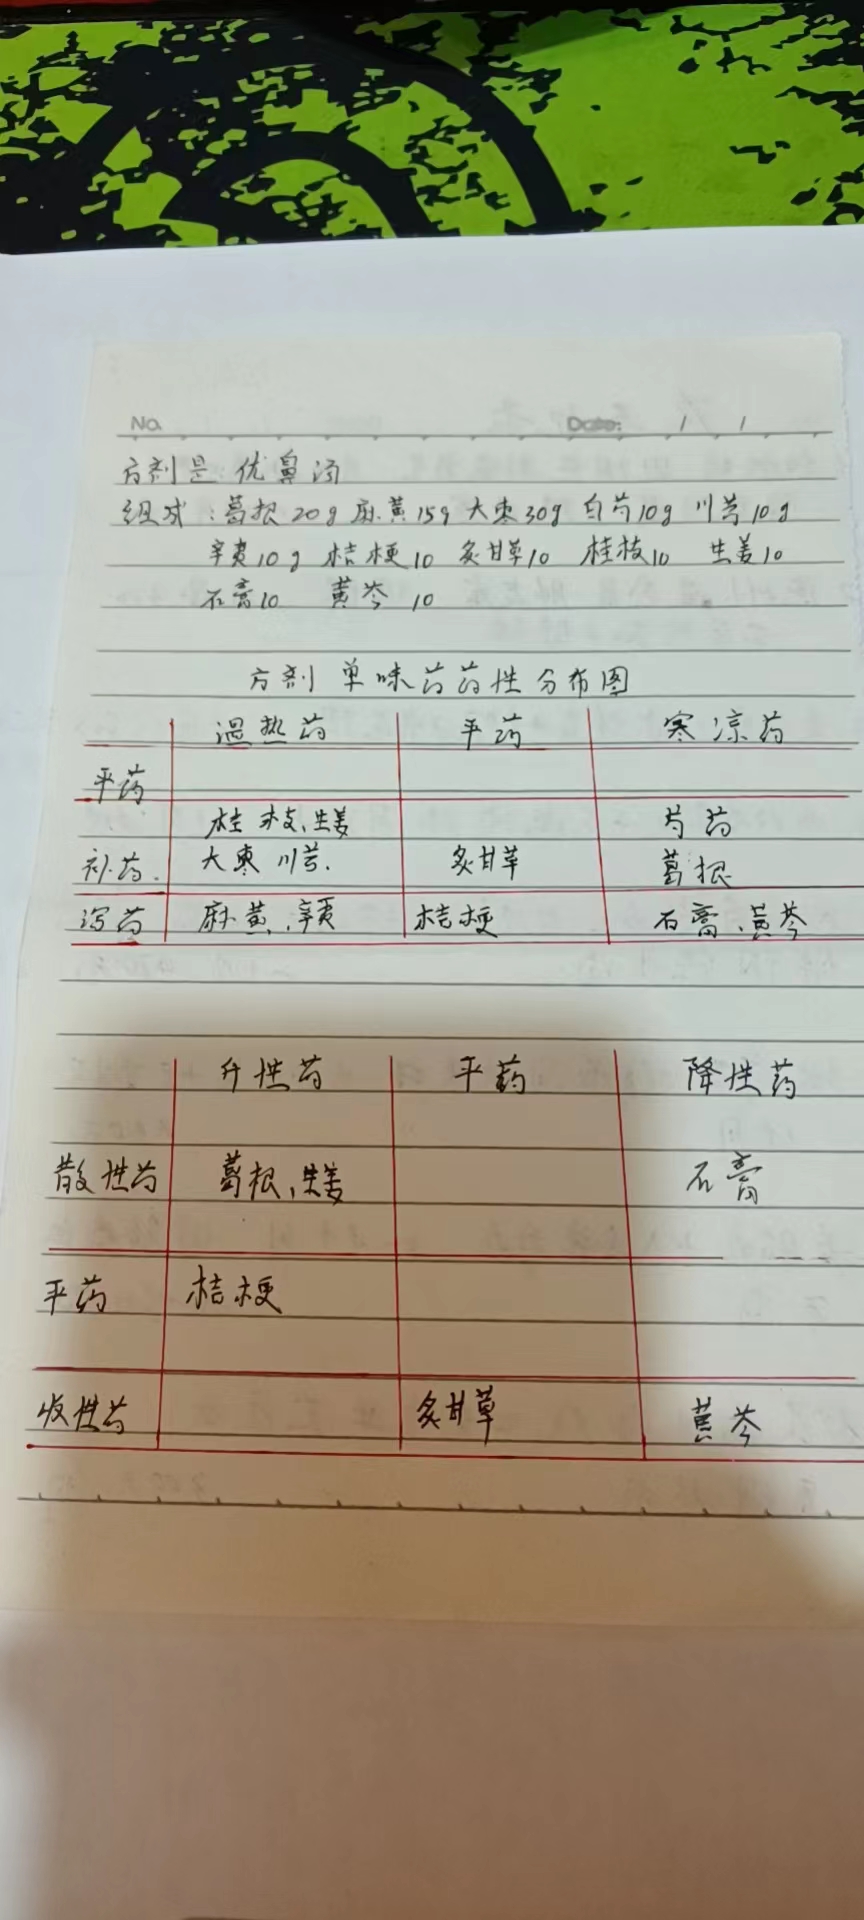 No.
Date: / /
方剂是 优鼻汤
组成：葛根20g 麻黄15g 大枣30g 白芍10g 川芎10g
辛夷10g 桔梗10 炙甘草10 桂枝10 生姜10
石膏10 黄芩10
方剂单味药药性分布图
温热药 平药 寒凉药
平药
桂枝、生姜 芍药
补药. 大枣 川芎. 炙甘草 葛根
泻药 麻黄、辛夷 桔梗 石膏、黄芩
升性药 平药 降性药
散性药 葛根、生姜 石膏
平药 桔梗
收性药 炙甘草 黄芩